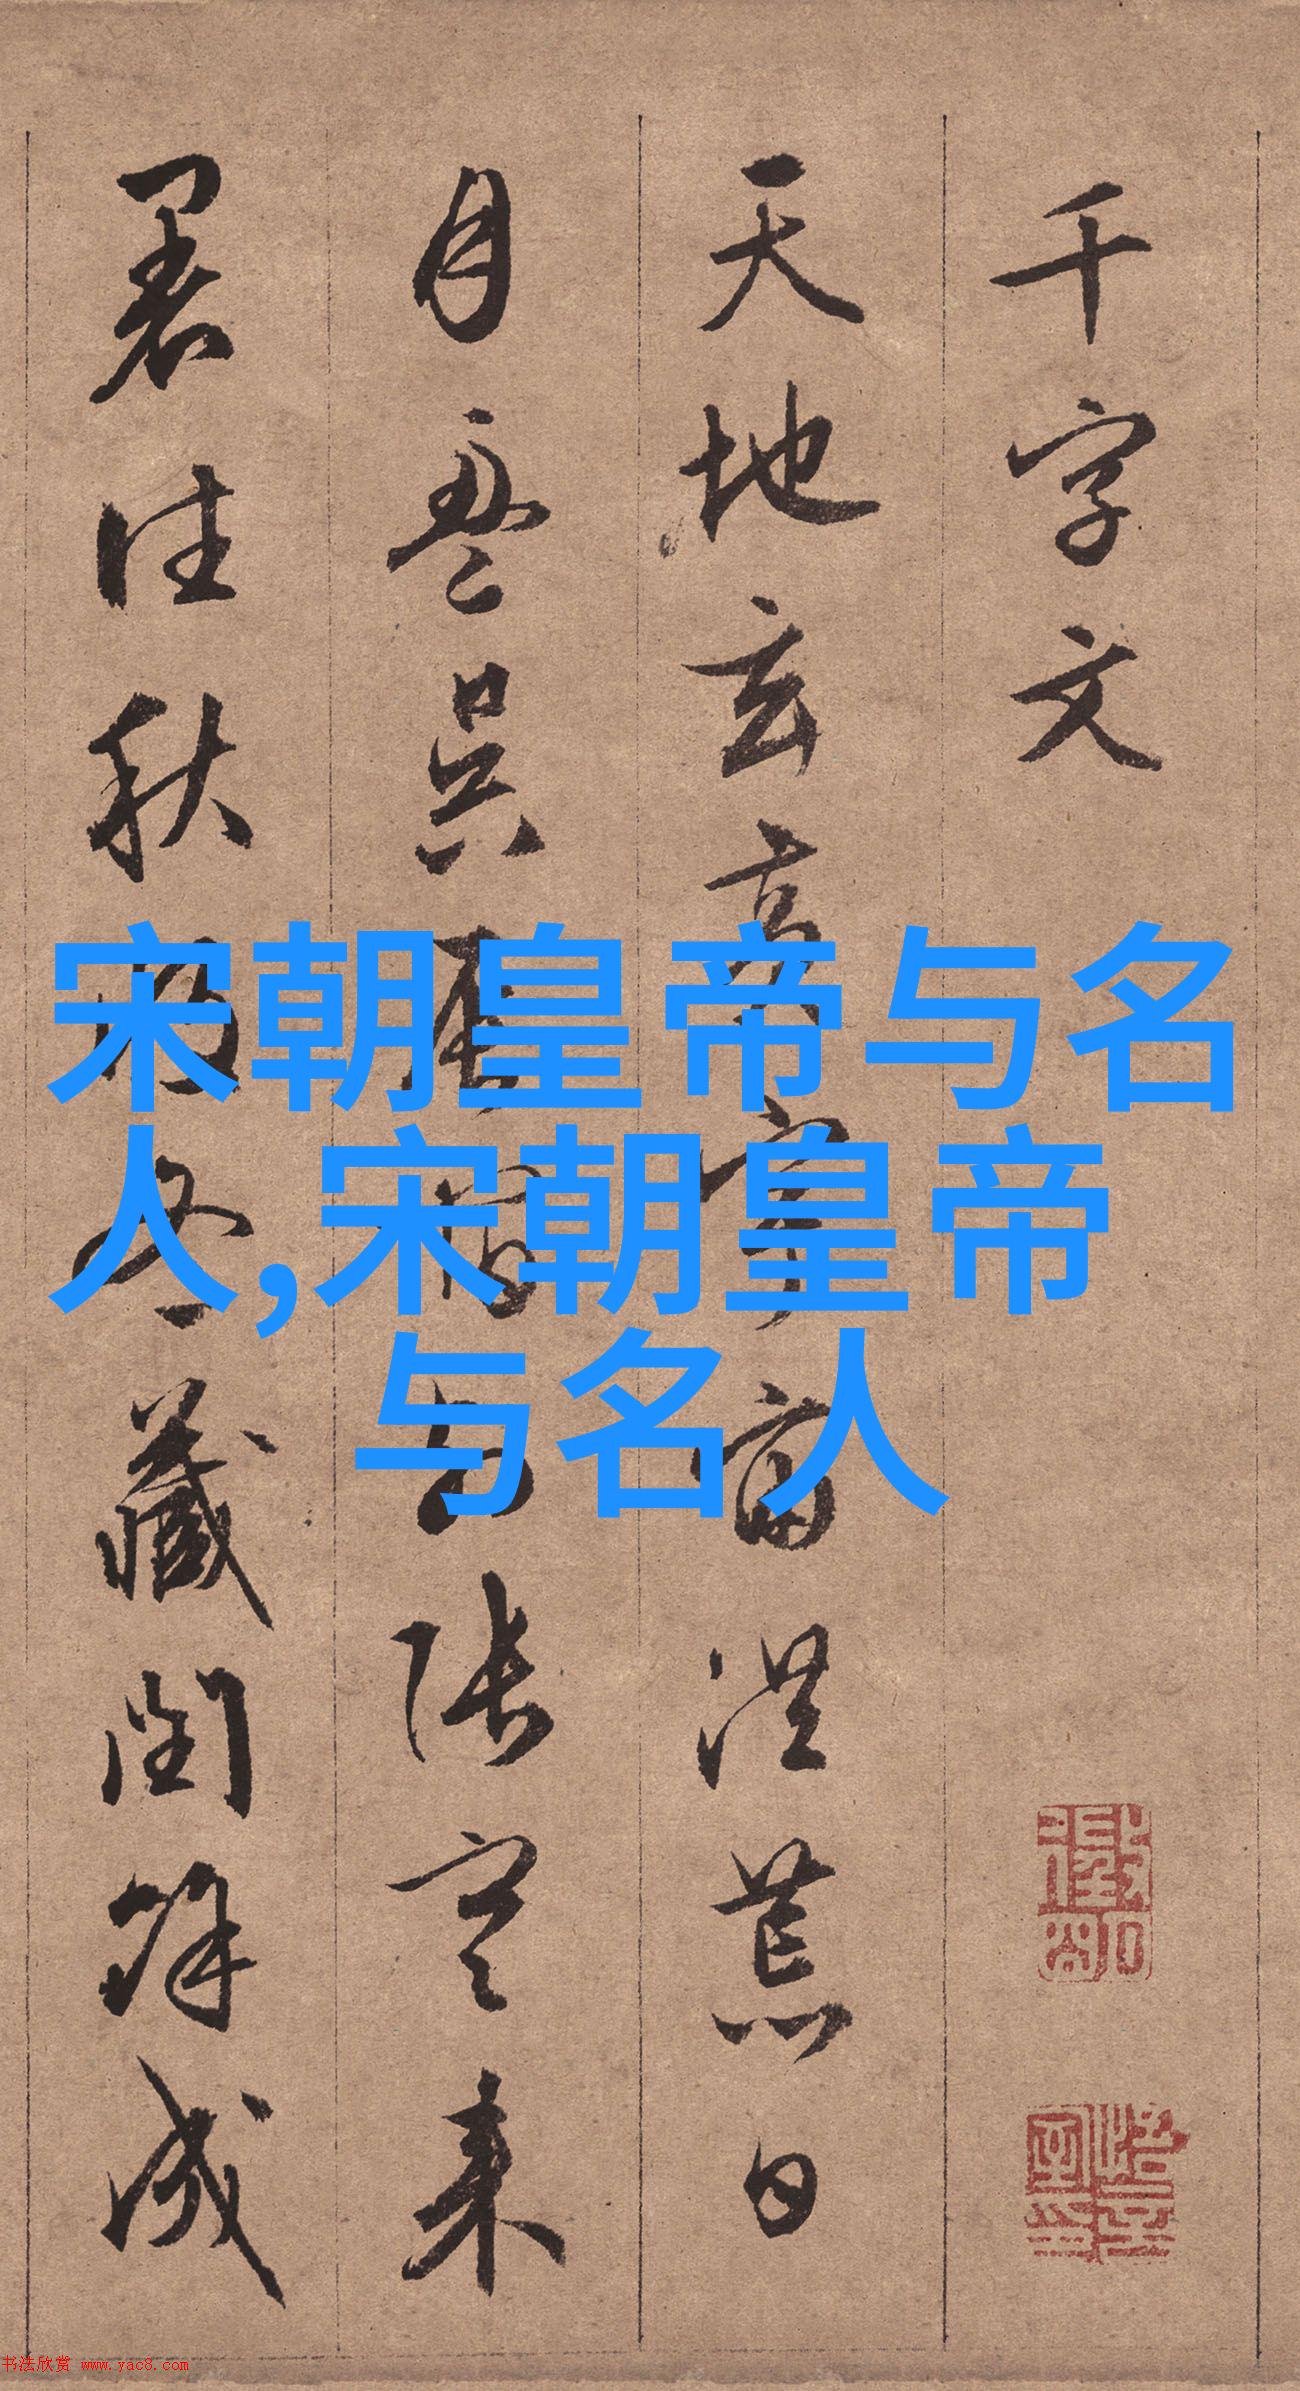 千字文
天地玄黄宇宙洪荒日
月盈昃辰宿列张寒来
暑往秋收冬藏闰余成
宋朝皇帝与名
人,宋朝皇帝
与名人
书法欣赏 www.yac8.com